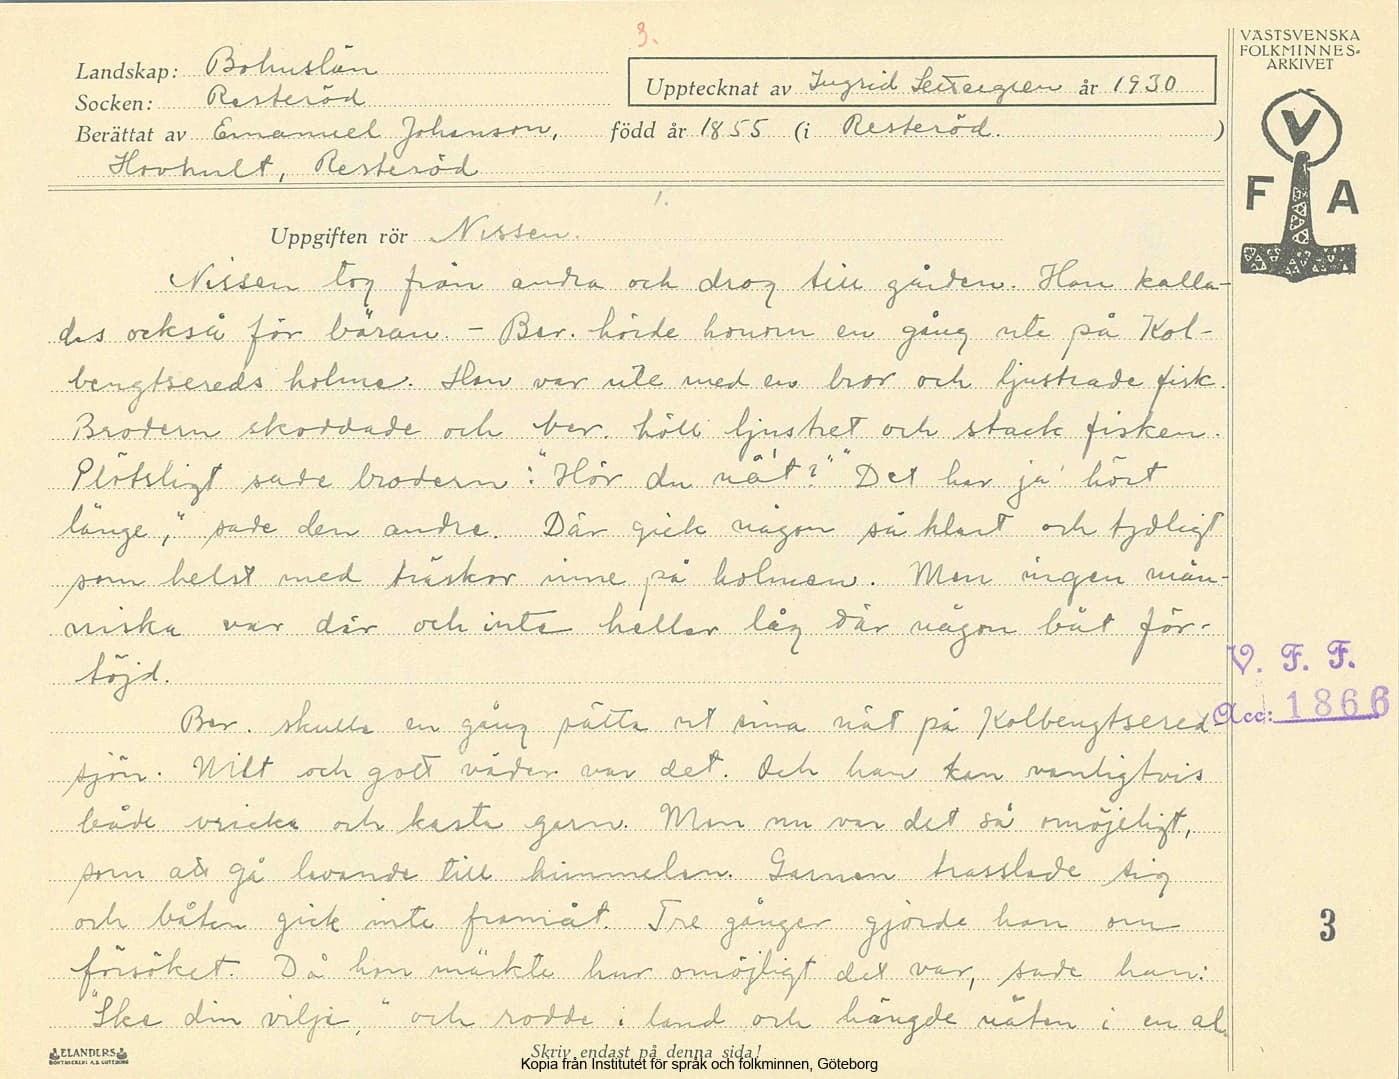 3.
VÄSTSVENSKA
FOLKMINNES-
ARKIVET
Landskap: Bohuslän
Upptecknat av Ingrid år 1930
Socken: Resteröd
Berättat av Emanuel Johanson, född år 1855 (i Resteröd.)
Hovhult, Resteröd
V
F A
1.
Uppgiften rör Nissen.
Nissen tog från andra och drog till gården. Han kalla-
des också för båran. - Ber. hörde honom en gång ute på Kol-
bengtsereds holme. Han var ute med en bror och ljustrade fisk.
Brodern skoddade och ber. höll ljustret och stack fisken.
Plötsligt sade brodern: "Hör du nå't?" "Det har ja' hört
länge," sade den andre. Där gick någon så klart och tydligt
som helst med träskor inne på holmen. Men ingen män-
niska var där och inte heller låg där någon båt för-
töjd.
V. F. F.
Acc: 1866
Ber. skulle en gång sätta ut sina nät på Kolbengtsered
sjön. Milt och gott väder var det. Och han kan vanligtvis
både vricka och kasta garn. Men nu var det så omöjeligt,
som att gå levande till himmelen. Garnen trasslade sig
och båten gick inte framåt. Tre gånger gjorde han om
försöket. Då han märkte hur omöjligt det var, sade han:
"Ske din vilje," och rodde i land och hängde näten i en al.
3
ELANDERS
BOKTRYCKERI A.B. GÖTEBORG
Skriv endast på denna sida!
Kopia från Institutet för språk och folkminnen, Göteborg